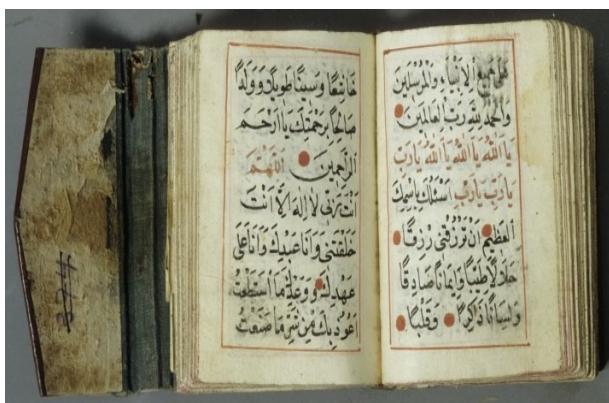 على جميع الانبياء والمرسلين
والحمد لله رب العالمين
يا الله يا الله يا الله يارب
يارب يارب اسئلك باسمك
العظيم ان ترزقني رزقا
حلالا طيبا وايمانا صادقا
ولسانا ذاكرا وقلبا
خاشعا وسيبا طويلا وولدا
صالحا برحمتك يا ارحم
الراحمين اللهم
انت ربي لا اله الا انت
خلقتني وانا عبدك وانا على
عهدك ووعدك ما استطعت
اعوذ بك من شر ما صنعت